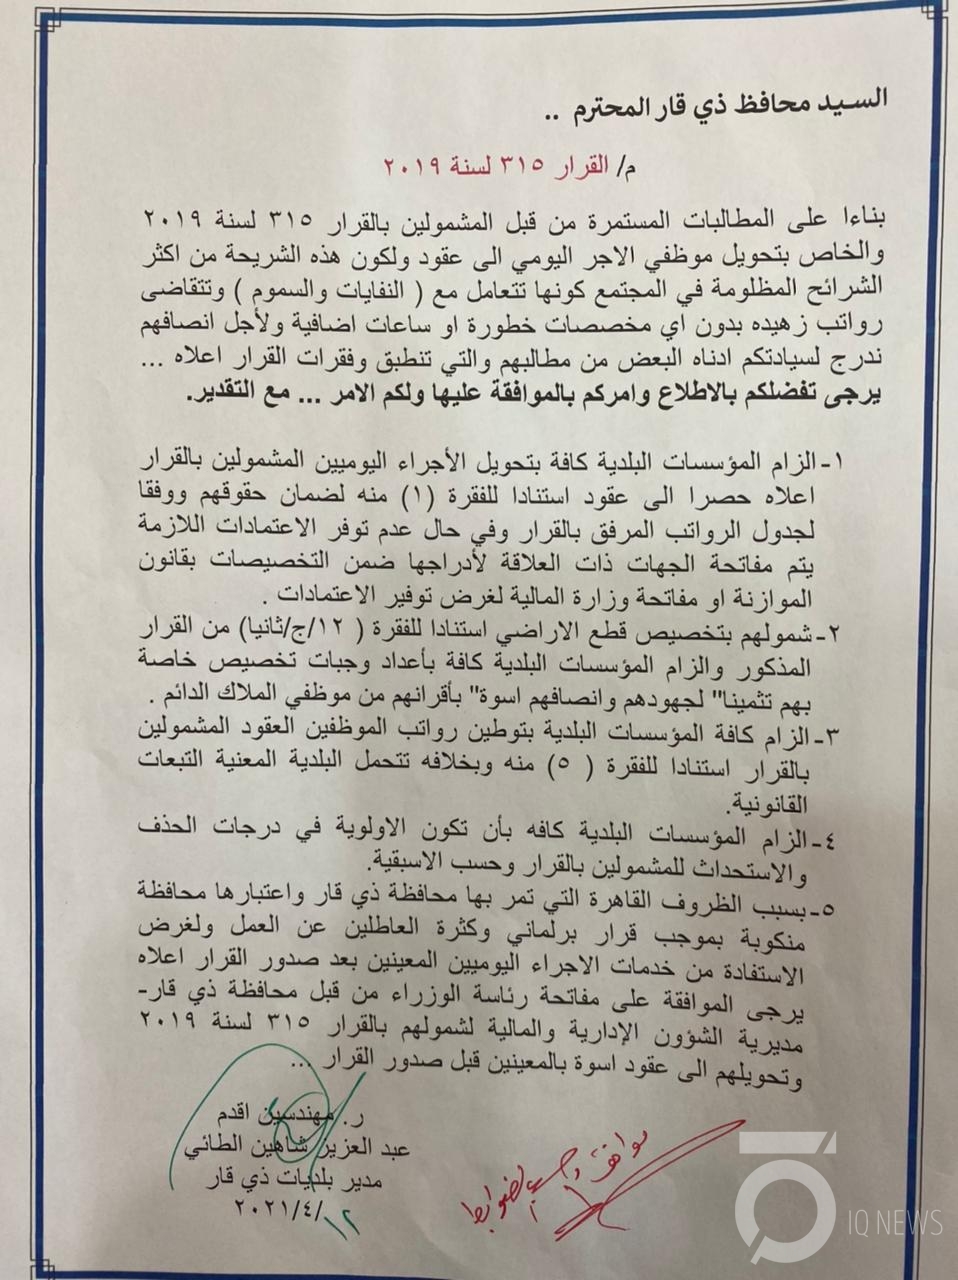 السيد محافظ ذي قار المحترم ..
م/ القرار ٣١٥ لسنة ٢٠١٩
بناءا على المطالبات المستمرة من قبل المشمولين بالقرار ٣١٥ لسنة ٢٠١٩
والخاص بتحويل موظفي الاجر اليومي الى عقود ولكون هذه الشريحة من اكثر
الشرائح المظلومة في المجتمع كونها تتعامل مع ( النفايات والسموم ) وتتقاضى
رواتب زهيده بدون اي مخصصات خطورة او ساعات اضافية ولأجل انصافهم
ندرج لسيادتكم ادناه البعض من مطالبهم والتي تنطبق وفقرات القرار اعلاه ...
يرجى تفضلكم بالاطلاع وامركم بالموافقة عليها ولكم الامر ... مع التقدير.
١- الزام المؤسسات البلدية كافة بتحويل الأجراء اليوميين المشمولين بالقرار
اعلاه حصرا الى عقود استنادا للفقرة (١) منه لضمان حقوقهم ووفقا
لجدول الرواتب المرفق بالقرار وفي حال عدم توفر الاعتمادات اللازمة
يتم مفاتحة الجهات ذات العلاقة لأدراجها ضمن التخصيصات بقانون
الموازنة او مفاتحة وزارة المالية لغرض توفير الاعتمادات .
٢- شمولهم بتخصيص قطع الاراضي استنادا للفقرة ( ١٢/ج/ثانيا) من القرار
المذكور والزام المؤسسات البلدية كافة بأعداد وجبات تخصيص خاصة
بهم تثمينا" لجهودهم وانصافهم اسوة" بأقرانهم من موظفي الملاك الدائم .
٣- الزام كافة المؤسسات البلدية بتوطين رواتب الموظفين العقود المشمولين
بالقرار استنادا للفقرة ( ٥) منه وبخلافه تتحمل البلدية المعنية التبعات
القانونية.
٤- الزام المؤسسات البلدية كافه بأن تكون الاولوية في درجات الحذف
والاستحداث للمشمولين بالقرار وحسب الاسبقية.
٥- بسبب الظروف القاهرة التي تمر بها محافظة ذي قار واعتبارها محافظة
منكوبة بموجب قرار برلماني وكثرة العاطلين عن العمل ولغرض
الاستفادة من خدمات الاجراء اليوميين المعينين بعد صدور القرار اعلاه
يرجى الموافقة على مفاتحة رئاسة الوزراء من قبل محافظة ذي قار-
مديرية الشؤون الإدارية والمالية لشمولهم بالقرار ٣١٥ لسنة ٢٠١٩
وتحويلهم الى عقود اسوة بالمعينين قبل صدور القرار ...
ر. مهندسين اقدم
عبد العزيز شاهين الطائي
مدير بلديات ذي قار
١٢/٤/٢٠٢١
موافق وحسب الضوابط
IQ NEWS